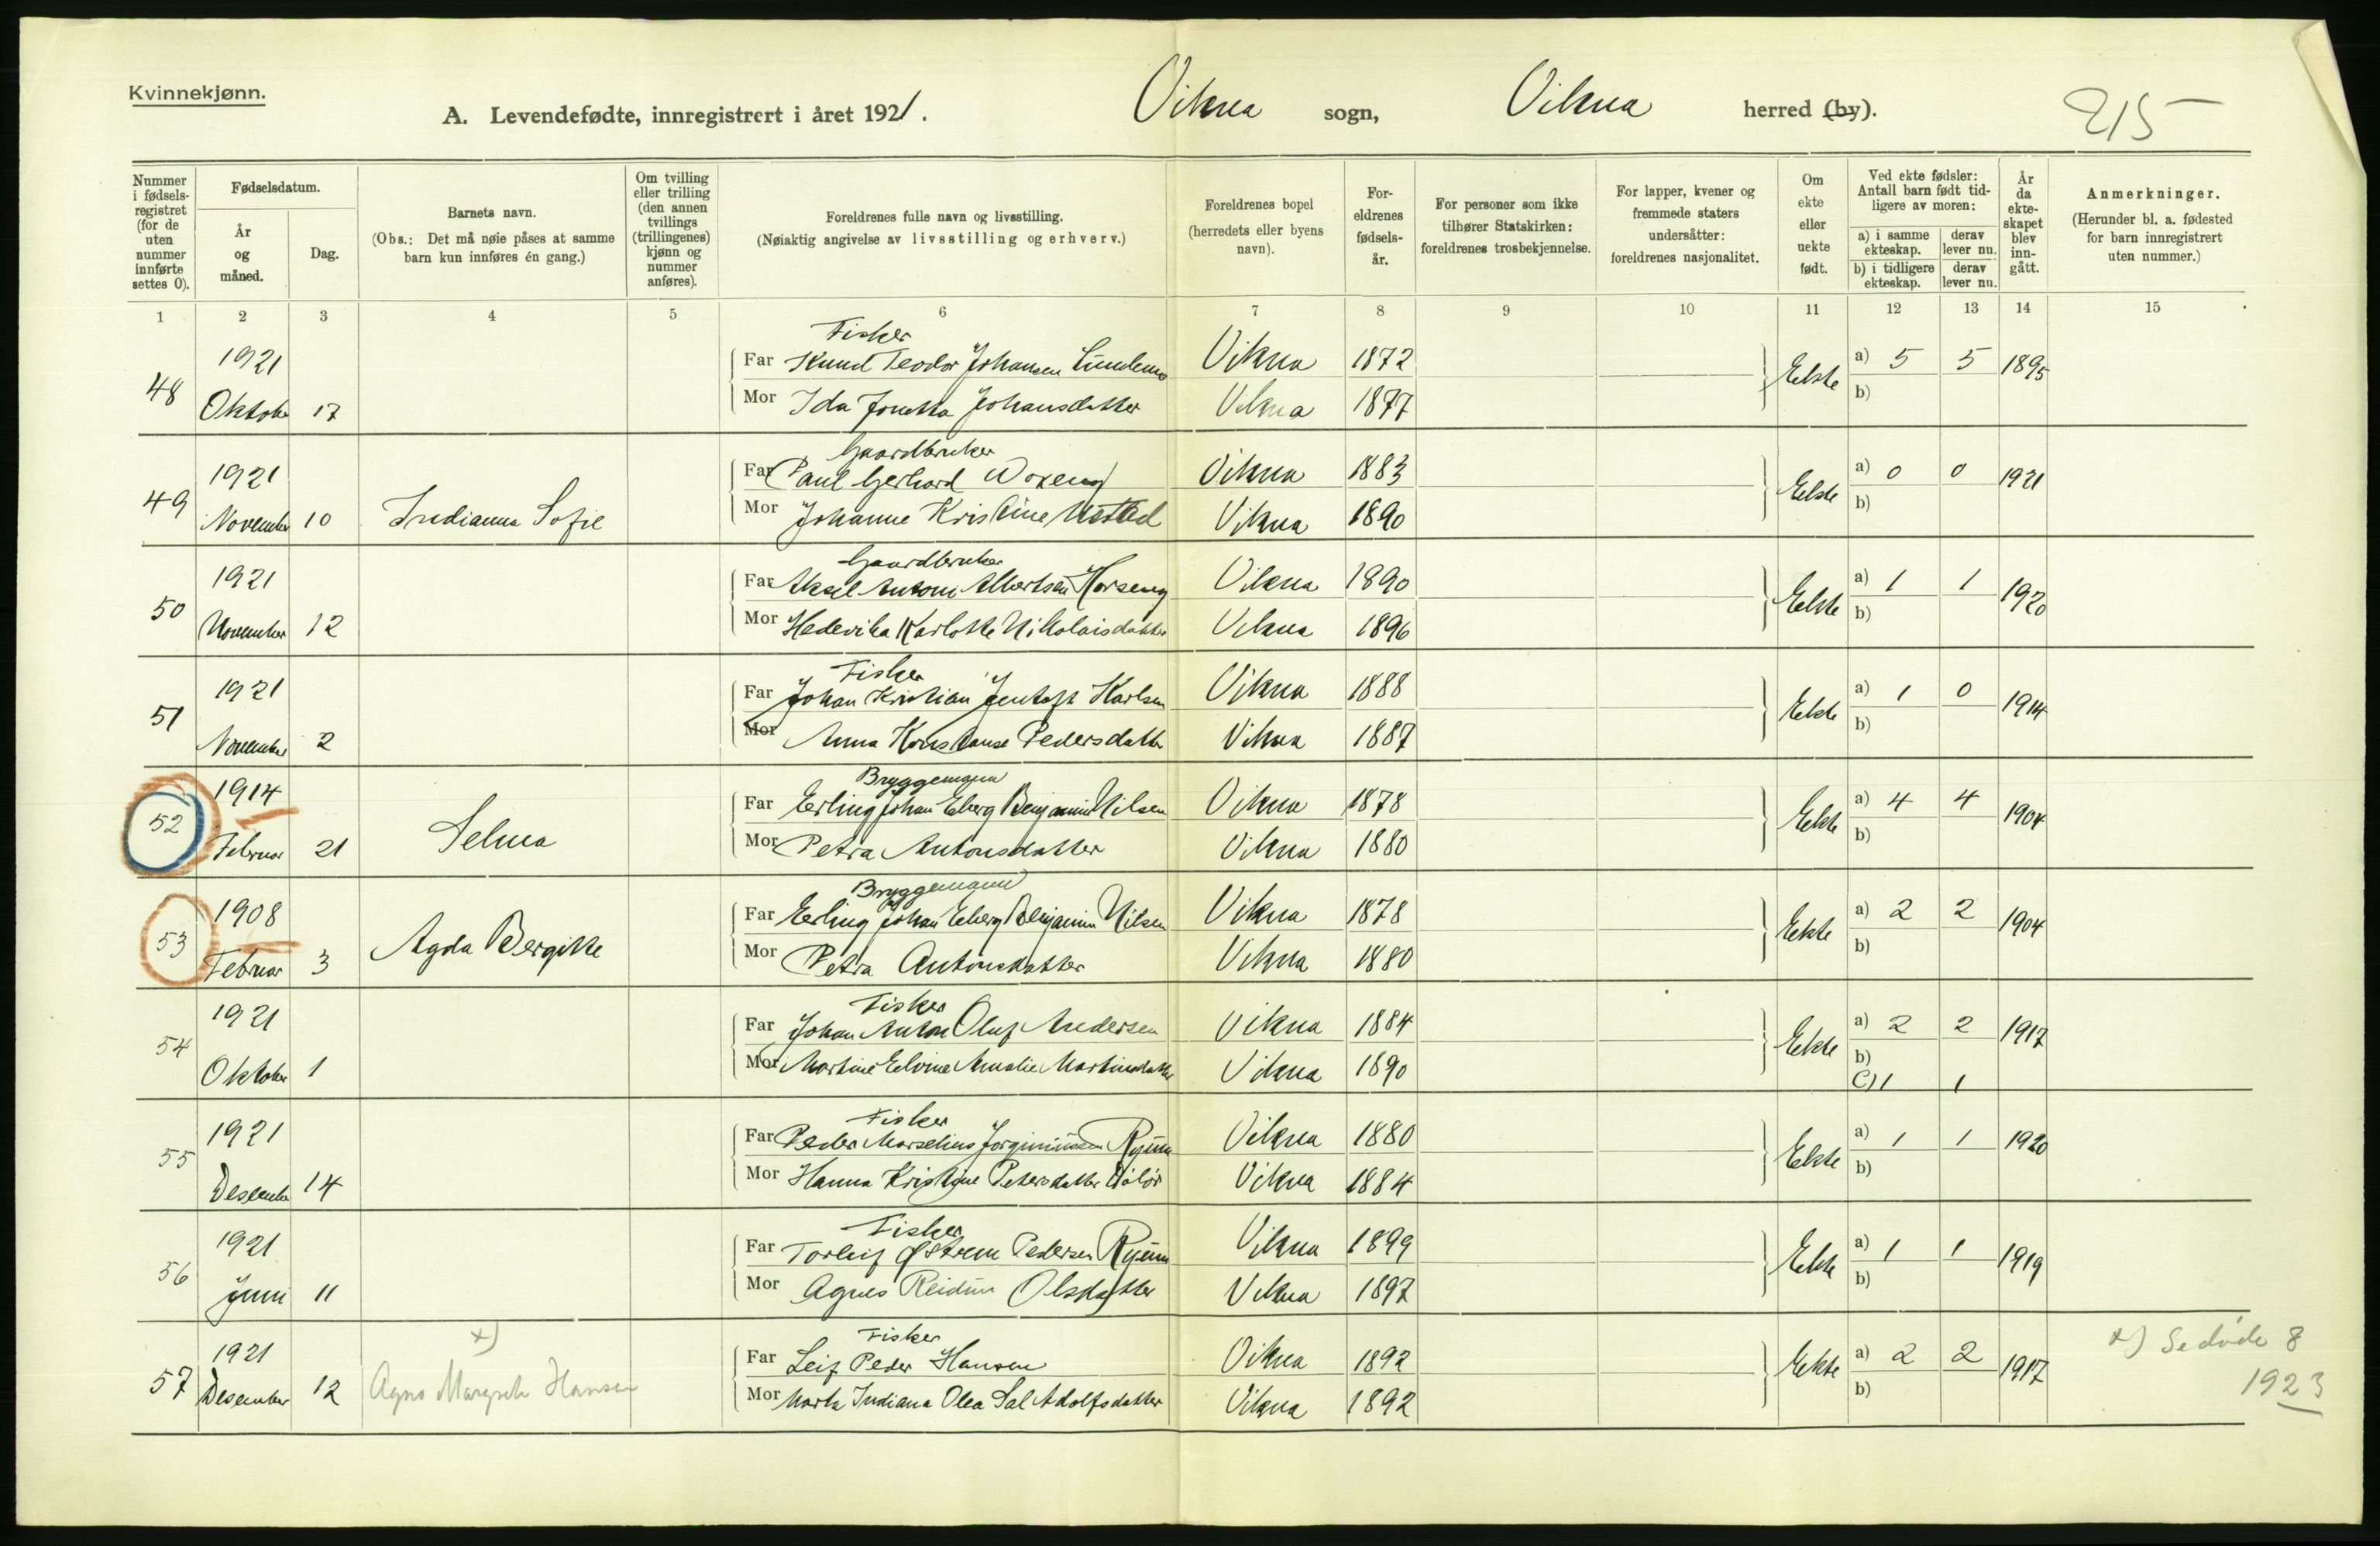 Kvinnekjønn.
A. Levendefødte, innregistrert i året 1921.
Vikna sogn, Vikna herred (by).
215
Nummer i fødsels-registret (for de uten nummer innførte settes 0).
Fødselsdatum.
År og måned.
Dag.
Barnets navn.
(Obs.: Det må nøie påses at samme barn kun innføres én gang.)
Om tvilling eller trilling (den annen tvillings (trillingenes) kjønn og nummer anføres).
Foreldrenes fulle navn og livsstilling.
(Nøiaktig angivelse av livsstilling og erhverv.)
Foreldrenes bopel (herredets eller byens navn).
For-eldrenes fødsels-år.
For personer som ikke tilhører Statskirken: foreldrenes trosbekjennelse.
For lapper, kvener og fremmede staters undersåtter: foreldrenes nasjonalitet.
Om ekte eller uekte født.
Ved ekte fødsler: Antall barn født tid-ligere av moren:
a) i samme ekteskap. derav lever nu.
b) i tidligere ekteskap. derav lever nu.
År da ekte-skapet blev inn-gått.
Anmerkninger.
(Herunder bl. a. fødested for barn innregistrert uten nummer.)
1 2 3 4 5 6 7 8 9 10 11 12 13 14 15
Fisker
48 1921 Far Knud Teodor Johansen Vikna 1872 Ekte a) 5 5 1895
Oktober 17 Mor Ida Jonetta Johansdatter Vikna 1877 b)
Gaardbruker
49 1921 Far Paul Gerhard Woxeng Vikna 1883 Ekte a) 0 0 1921
November 10 Indianna Sofie Mor Johanne Kristine Vikna 1890 b)
Gaardbruker
50 1921 Far Aksel Antoni Albertsen Horseng Vikna 1890 Ekte a) 1 1 1920
November 12 Mor Hedevika Karlotte Nikolaisdatter Vikna 1896 b)
Fisker
51 1921 Far Johan Kristian Jentoft Karlsen Vikna 1888 Ekte a) 1 0 1914
November 2 Mor Anna Konstanse Pedersdatter Vikna 1887 b)
Bryggemann
52 1914 Far Erling Johan Eberg Benjamin Nilsen Vikna 1878 Ekte a) 4 4 1904
Februar 21 Selma Mor Petra Antonsdatter Vikna 1880 b)
Bryggemann
53 1908 Far Erling Johan Eberg Benjamin Nilsen Vikna 1878 Ekte a) 2 2 1904
Februar 3 Agda Bergitte Mor Petra Antonsdatter Vikna 1880 b)
Fisker
54 1921 Far Johan Anton Oluf Andersen Vikna 1884 Ekte a) 2 2 1917
Oktober 1 Mor Martine Elvine Amalie Martinsdatter Vikna 1890 b)
C) 1 1
Fisker
55 1921 Far Peder Marselius Ryum Vikna 1880 Ekte a) 1 1 1920
Desember 14 Mor Hanna Kristine Petersdatter Vikna 1884 b)
Fisker
56 1921 Far Torleif Østrem Pedersen Ryum Vikna 1899 Ekte a) 1 1 1919
Juni 11 Mor Agnes Reidun Olsdatter Vikna 1897 b)
x) Fisker
57 1921 Far Leif Peder Hansen Vikna 1892 Ekte a) 2 2 1917 x) Se døde 8
Desember 12 Agns Margrete Hansen Mor Marta Indiana Olea Sal Adolfsdatter Vikna 1892 b) 1923